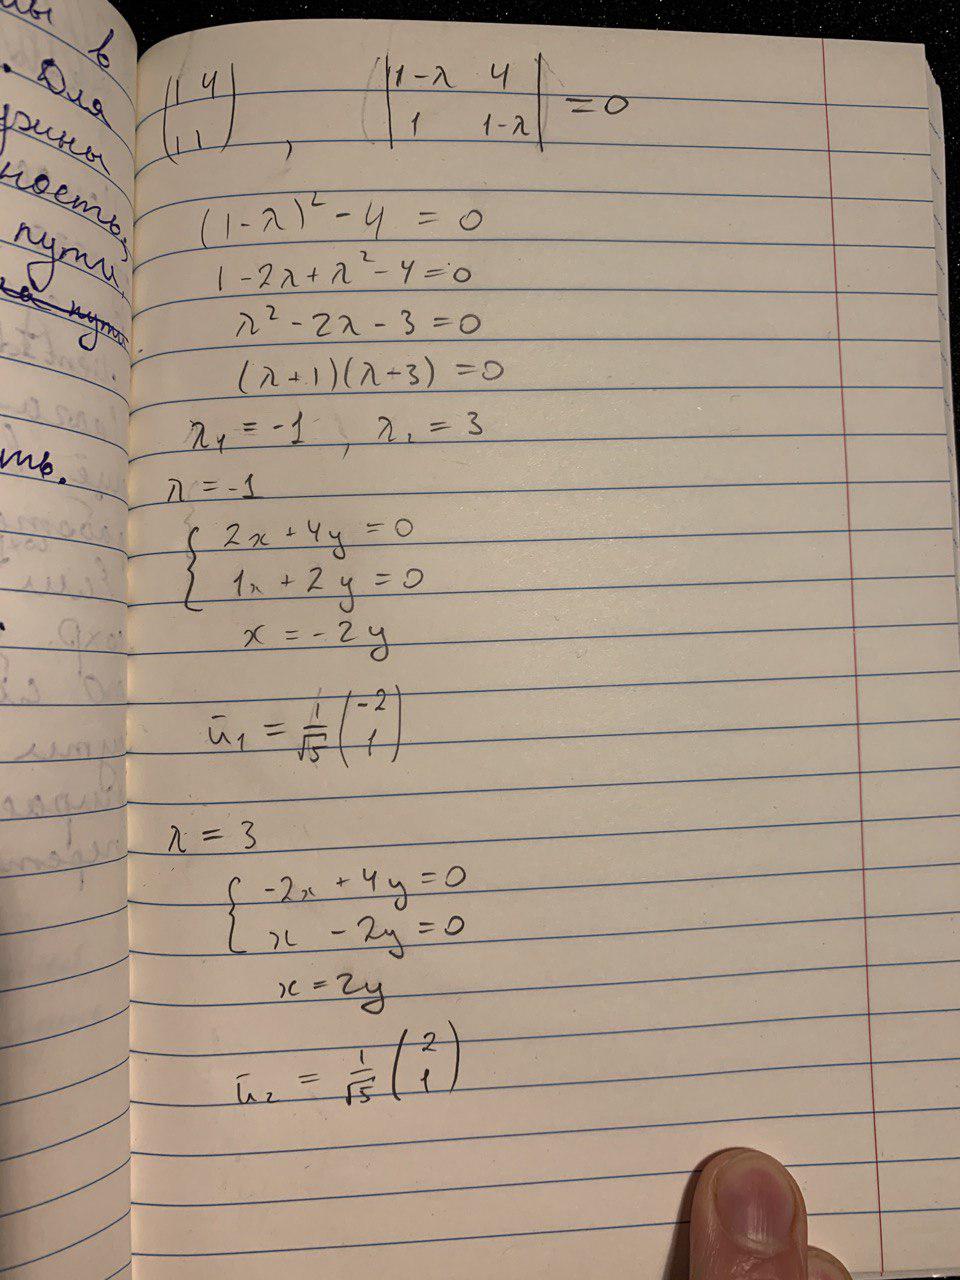 ы в
. Для
ность,
пути.
пути
ть.
(1 4
1 1) , |1-λ 4
1 1-λ| = 0
(1-λ)² - 4 = 0
1 - 2λ + λ² - 4 = 0
λ² - 2λ - 3 = 0
(λ+1)(λ-3) = 0
λ₁ = -1 , λ₂ = 3
λ = -1
{ 2x + 4y = 0
1x + 2y = 0
x = -2y
ū₁ = 1/√5 (-2
1)
λ = 3
{ -2x + 4y = 0
x - 2y = 0
x = 2y
ū₂ = 1/√5 (2
1)